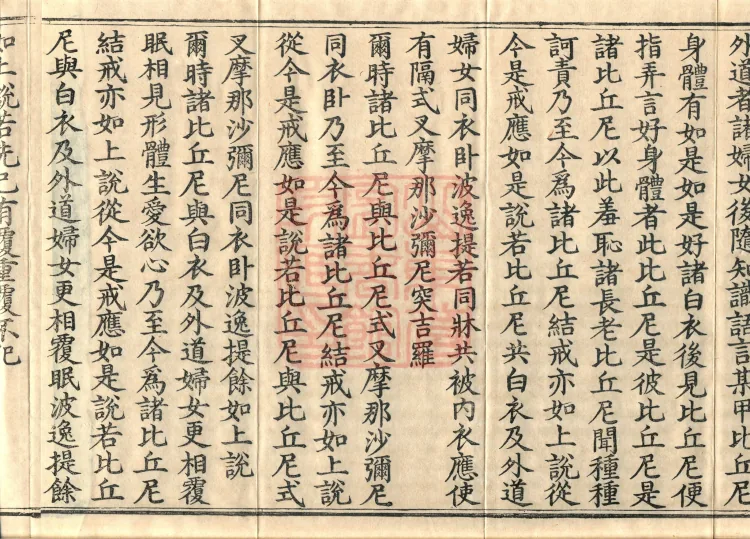 外道者諸婦女後隨知識語言某甲比丘尼
身體有如是如是好諸白衣後見比丘尼便
指弄言好身體者此比丘尼是彼比丘尼是
諸比丘尼以此羞恥諸長老比丘尼聞種種
訶責乃至今爲諸比丘尼結戒亦如上說從
今是戒應如是說若比丘尼共白衣及外道
婦女同衣卧波逸提若同牀共被內衣應使
有隔式叉摩那沙彌尼突吉羅
爾時諸比丘尼與比丘尼式叉摩那沙彌尼
同衣卧乃至今爲諸比丘尼結戒亦如上說
從今是戒應如是說若比丘尼與比丘尼式
叉摩那沙彌尼同衣卧波逸提餘如上說
爾時諸比丘尼與白衣及外道婦女更相覆
眠相見形體生愛欲心乃至今爲諸比丘尼
結戒亦如上說從今是戒應如是說若比丘
尼與白衣及外道婦女更相覆眠波逸提餘
如上說若先已有覆重覆不犯